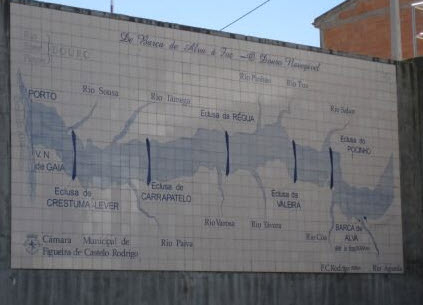 De Barca de Alva à Foz - O Douro Navegável
DOURO
PORTO
Rio Sousa
Rio Tâmega
Eclusa da RÉGUA
Rio Pinhão
Rio Tua
Rio Sabor
Eclusa do
POCINHO
V. N.
de GAIA
Eclusa de
CRESTUMA-LEVER
Eclusa de
CARRAPATELO
Eclusa da
VALEIRA
Rio Paiva
Rio Varosa
Rio Távora
Rio Côa
BARCA de
ALVA
Rio Águeda
Câmara Municipal de
Figueira de Castelo Rodrigo
F.C.Rodrigo